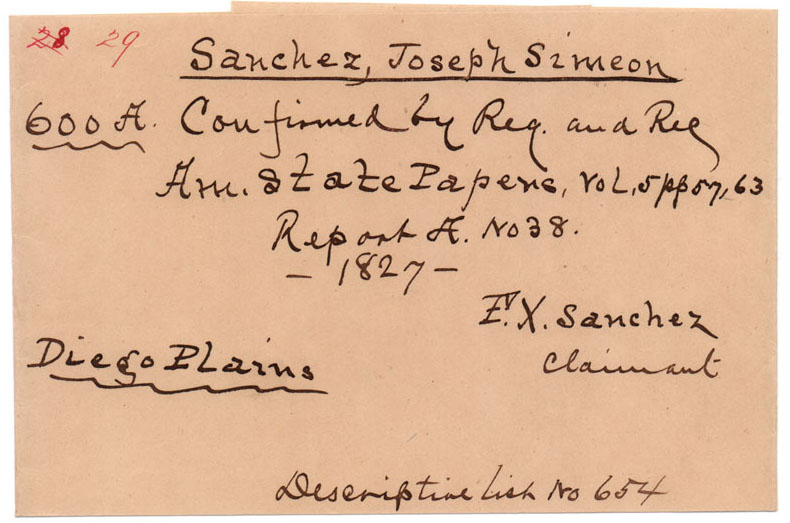 28 29
Sanchez, Joseph Simeon
600 A. Confirmed by Reg. and Rec
Am. State Papers, Vol. 5 pp 57, 63
Report A. No 38.
– 1827 –
F. X. Sanchez
Claimant
Diego Plains
Descriptive list No 654